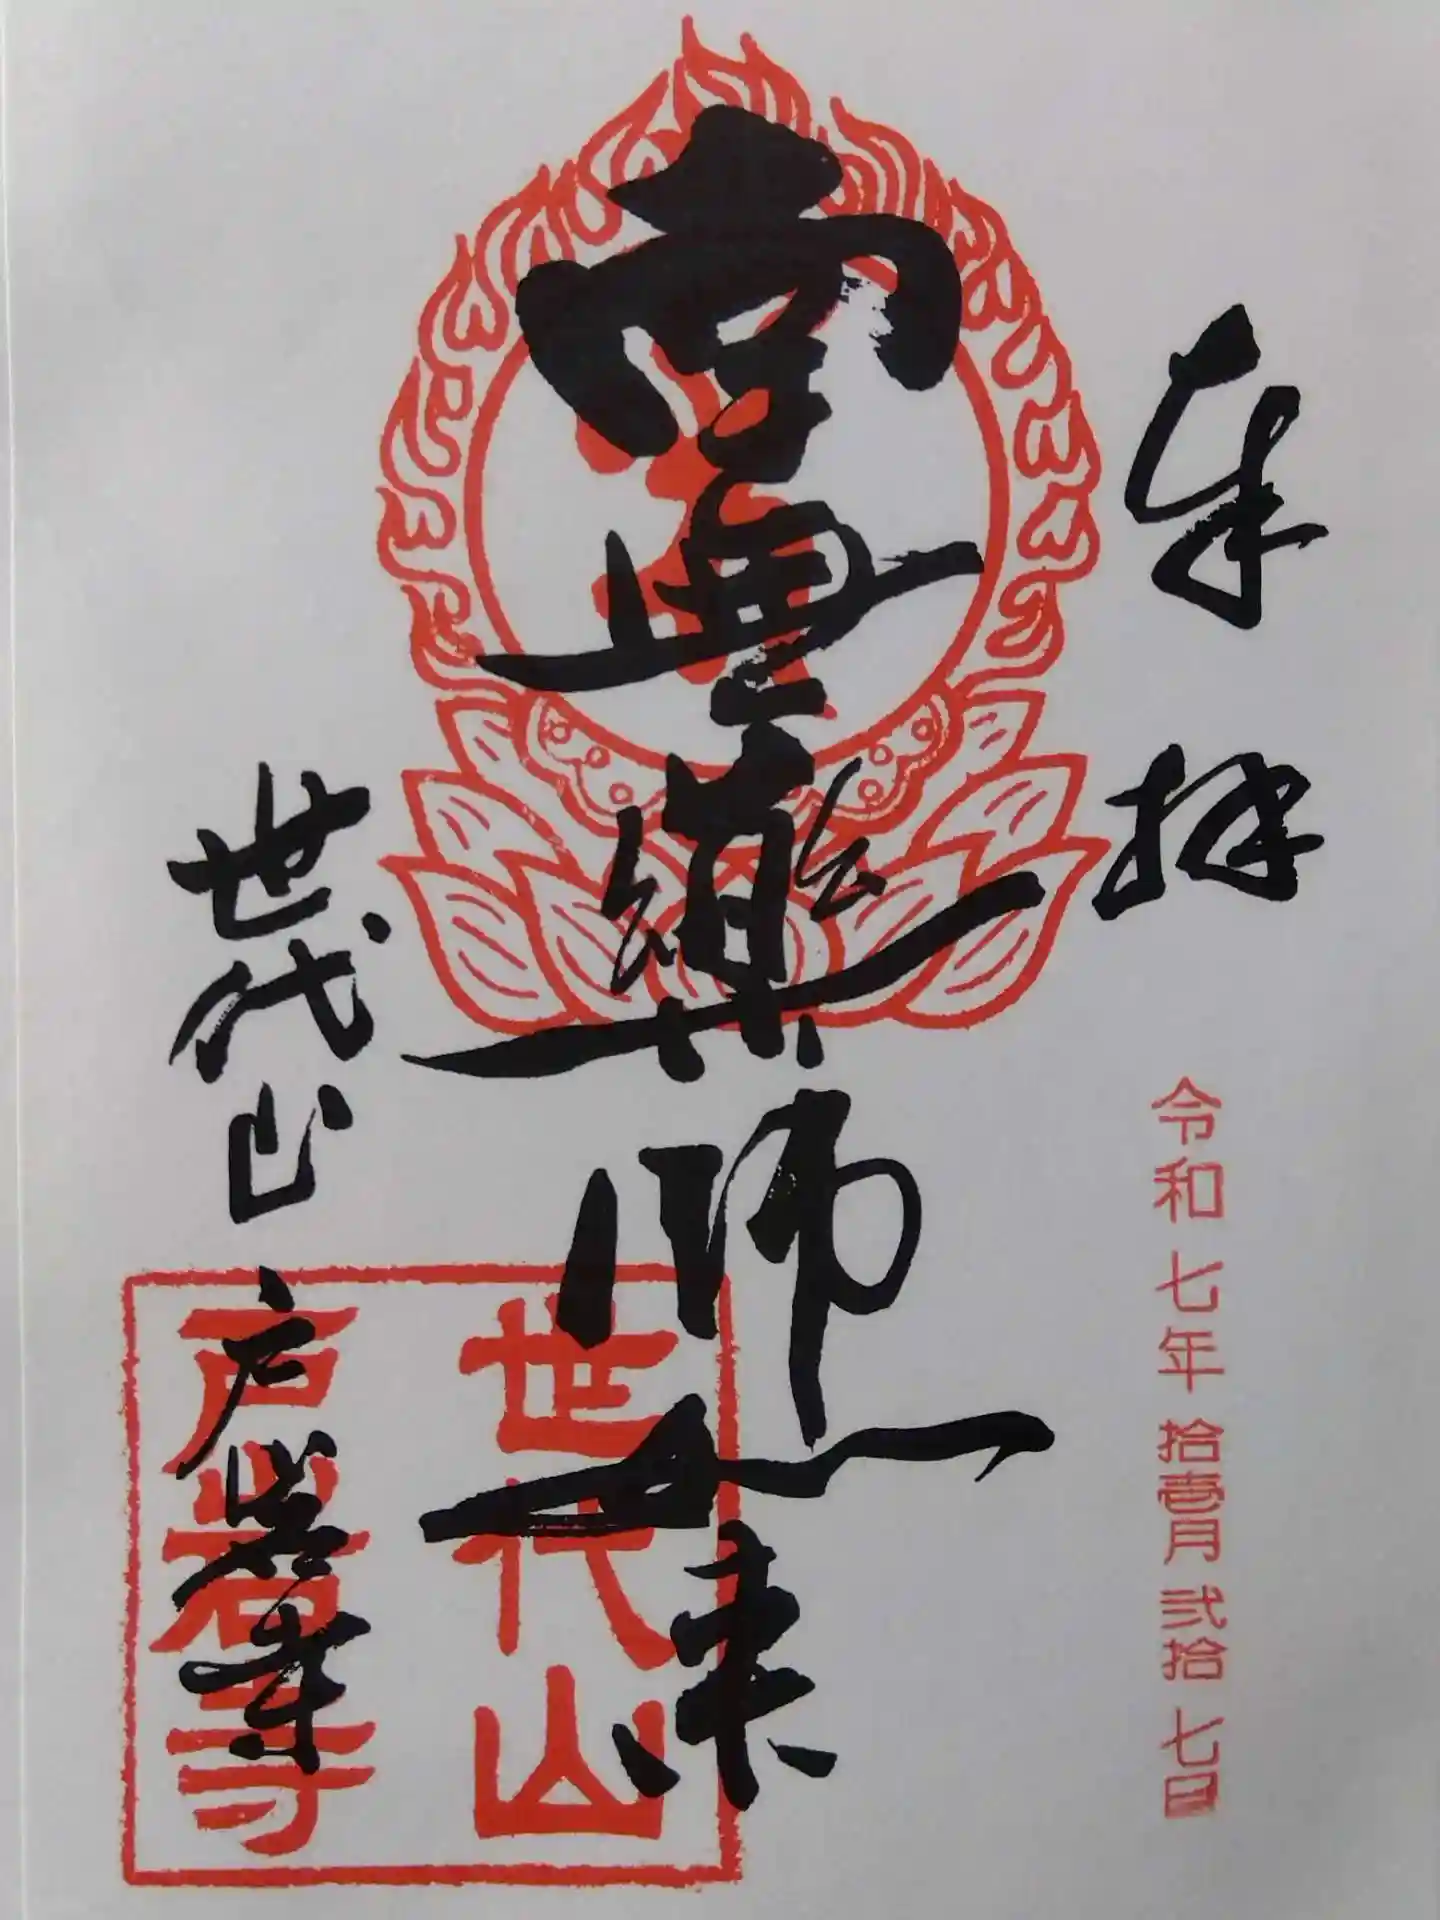 奉拝
令和七年拾壹月弐拾七日
薬師如来
世代山
戸岩寺
世代山
戸岩寺